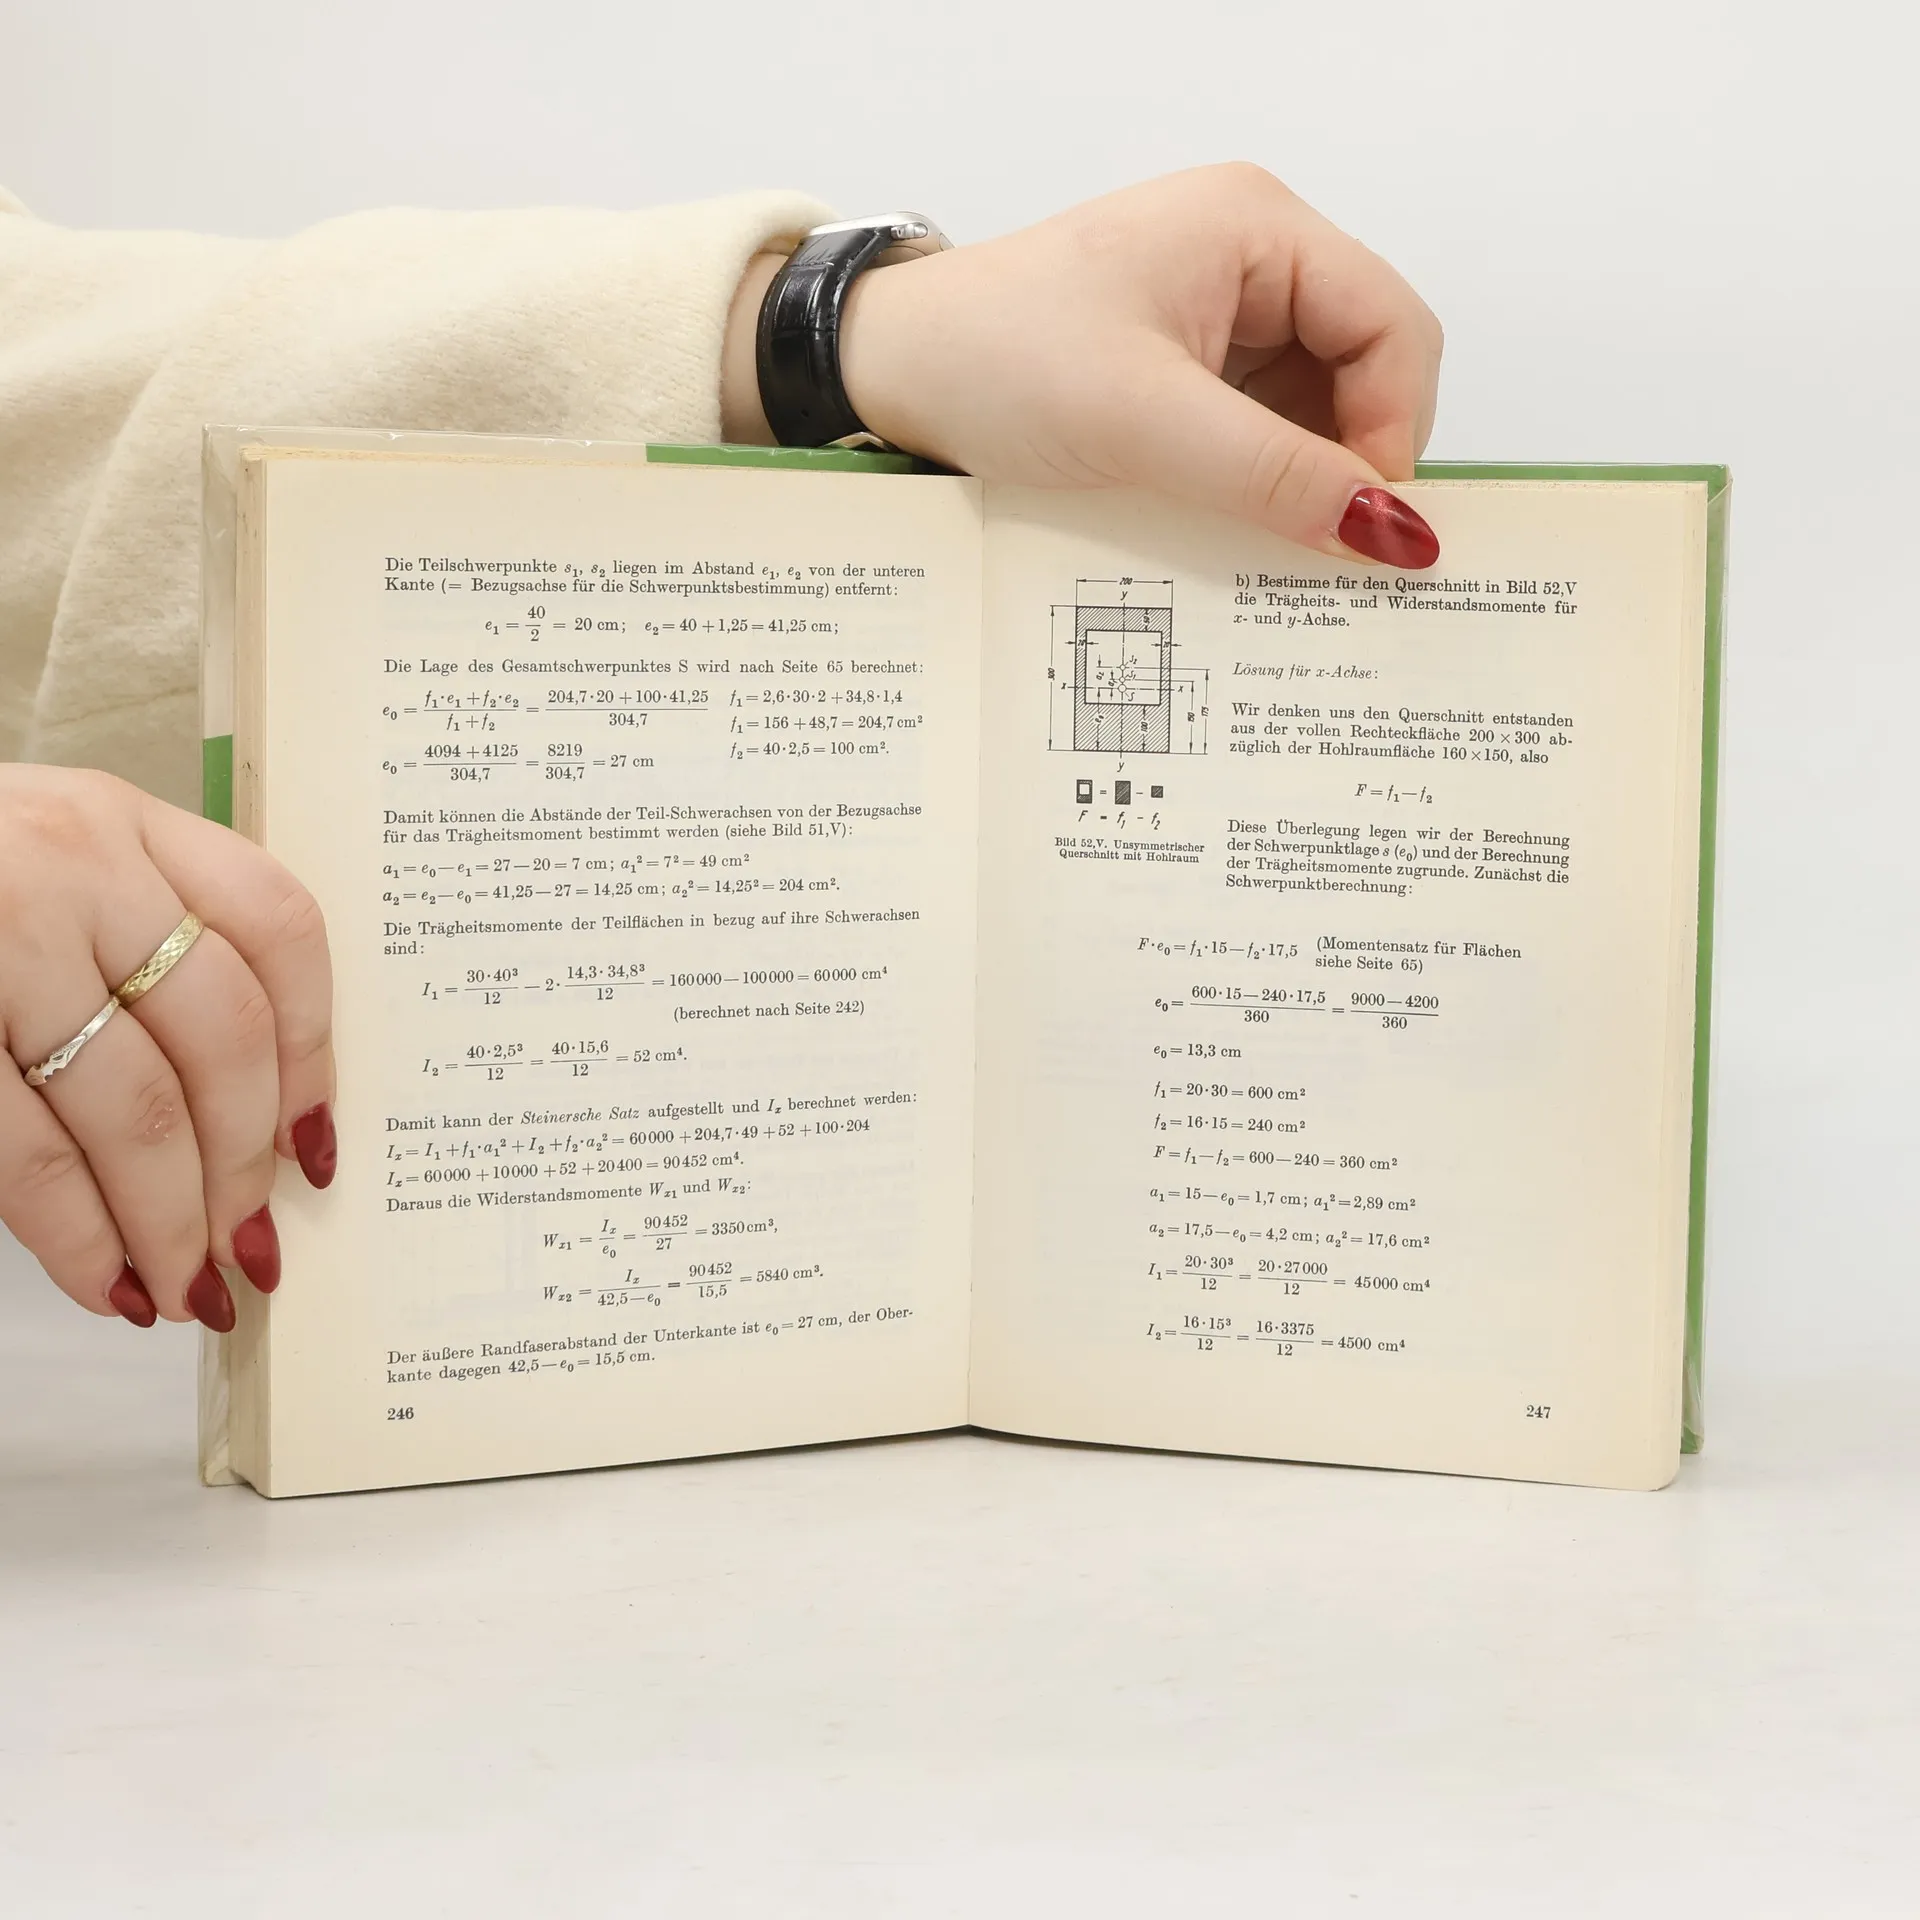 Die Teilschwerpunkte s₁, s₂ liegen im Abstand e₁, e₂ von der unteren
Kante (= Bezugsachse für die Schwerpunktsbestimmung) entfernt:
e₁ = 40/2 = 20 cm; e₂ = 40 + 1,25 = 41,25 cm;
Die Lage des Gesamtschwerpunktes S wird nach Seite 65 berechnet:
e₀ = (f₁·e₁ + f₂·e₂)/(f₁ + f₂) = (204,7·20 + 100·41,25)/304,7
f₁ = 2,6·30·2 + 34,8·1,4
f₁ = 156 + 48,7 = 204,7 cm²
e₀ = (4094 + 4125)/304,7 = 8219/304,7 = 27 cm
f₂ = 40·2,5 = 100 cm².
Damit können die Abstände der Teil-Schwerachsen von der Bezugsachse
für das Trägheitsmoment bestimmt werden (siehe Bild 51,V):
a₁ = e₀ — e₁ = 27 — 20 = 7 cm; a₁² = 7² = 49 cm²
a₂ = e₂ — e₀ = 41,25 — 27 = 14,25 cm; a₂² = 14,25² = 204 cm².
Die Trägheitsmomente der Teilflächen in bezug auf ihre Schwerachsen
sind:
I₁ = 30·40³/12 — 2·14,3·34,8³/12 = 160000 — 100000 = 60000 cm⁴
(berechnet nach Seite 242)
I₂ = 40·2,5³/12 = 40·15,6/12 = 52 cm⁴.
Damit kann der Steinersche Satz aufgestellt und Iₓ berechnet werden:
Iₓ = I₁ + f₁·a₁² + I₂ + f₂·a₂² = 60000 + 204,7·49 + 52 + 100·204
Iₓ = 60000 + 10000 + 52 + 20400 = 90452 cm⁴.
Daraus die Widerstandsmomente Wₓ₁ und Wₓ₂:
Wₓ₁ = Iₓ/e₀ = 90452/27 = 3350 cm³,
Wₓ₂ = Iₓ/(42,5 — e₀) = 90452/15,5 = 5840 cm³.
Der äußere Randfaserabstand der Unterkante ist e₀ = 27 cm, der Ober-
kante dagegen 42,5 — e₀ = 15,5 cm.
246
200
y
300
x
x
y
F = f₁ - f₂
Bild 52,V. Unsymmetrischer
Querschnitt mit Hohlraum
b) Bestimme für den Querschnitt in Bild 52,V
die Trägheits- und Widerstandsmomente für
x- und y-Achse.
Lösung für x-Achse:
Wir denken uns den Querschnitt entstanden
aus der vollen Rechteckfläche 200 × 300 ab-
züglich der Hohlraumfläche 160 × 150, also
F = f₁ — f₂
Diese Überlegung legen wir der Berechnung
der Schwerpunktlage s (e₀) und der Berechnung
der Trägheitsmomente zugrunde. Zunächst die
Schwerpunktberechnung:
F·e₀ = f₁·15 — f₂·17,5 (Momentensatz für Flächen
siehe Seite 65)
e₀ = (600·15 — 240·17,5)/360 = (9000 — 4200)/360
e₀ = 13,3 cm
f₁ = 20·30 = 600 cm²
f₂ = 16·15 = 240 cm²
F = f₁ — f₂ = 600 — 240 = 360 cm²
a₁ = 15 — e₀ = 1,7 cm; a₁² = 2,89 cm²
a₂ = 17,5 — e₀ = 4,2 cm; a₂² = 17,6 cm²
I₁ = 20·30³/12 = 20·27000/12 = 45000 cm⁴
I₂ = 16·15³/12 = 16·3375/12 = 4500 cm⁴
247